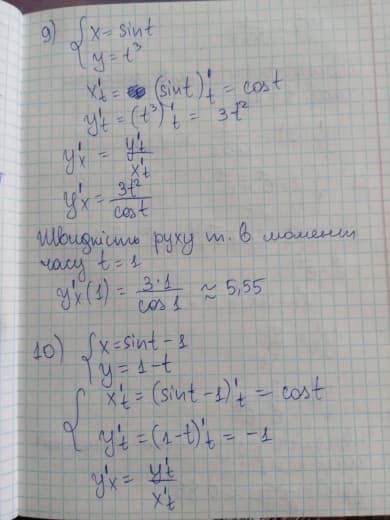 9) { x = sin t
y = t³
x't = (sin t)'t = cos t
y't = (t³)'t = 3t²
y'x = y't / x't
y'x = 3t² / cos t
Швидкість руху т. в момент
часу t = 1
y'x(1) = 3·1 / cos 1 ≈ 5,55
10) { x = sin t - 1
y = 1 - t
{ x't = (sin t - 1)'t = cos t
y't = (1 - t)'t = -1
y'x = y't / x't